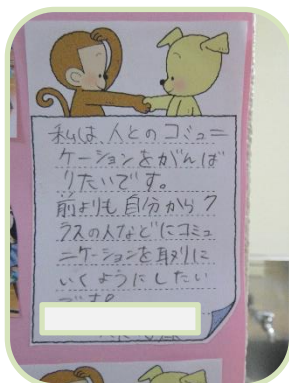 私は、人とのコミュニ
ケーションをがんば
りたいです。
前よりも自分からク
ラスの人などにコミュ
ニケーションを取りに
いくようにしたい
です。